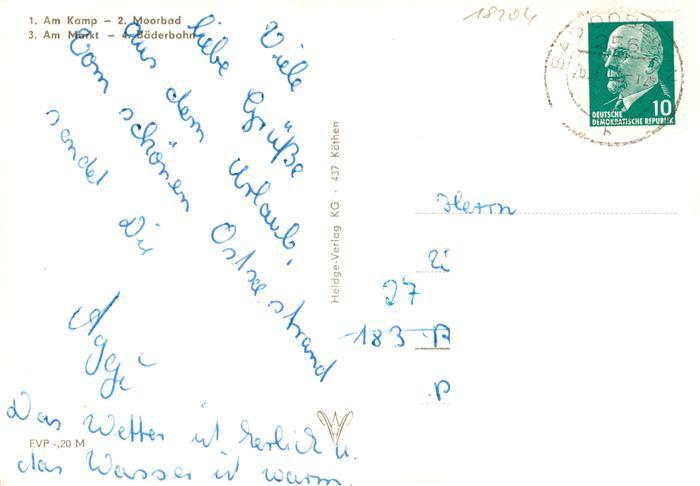 1. Am Kamp – 2. Moorbad
3. Am Markt – 4. Bäderbahn
Viele
liebe Grüße
aus dem Urlaub,
vom schönen Ostseestrand
sendet Dir
Aggi
Das Wetter ist herlich u.
das Wasser ist warm.
EVP -,20 M
Heldge-Verlag KG · 437 Köthen
18204
BAD DOB
256
10
DEUTSCHE
DEMOKRATISCHE REPUBLIK
Herrn
27
183 R
P